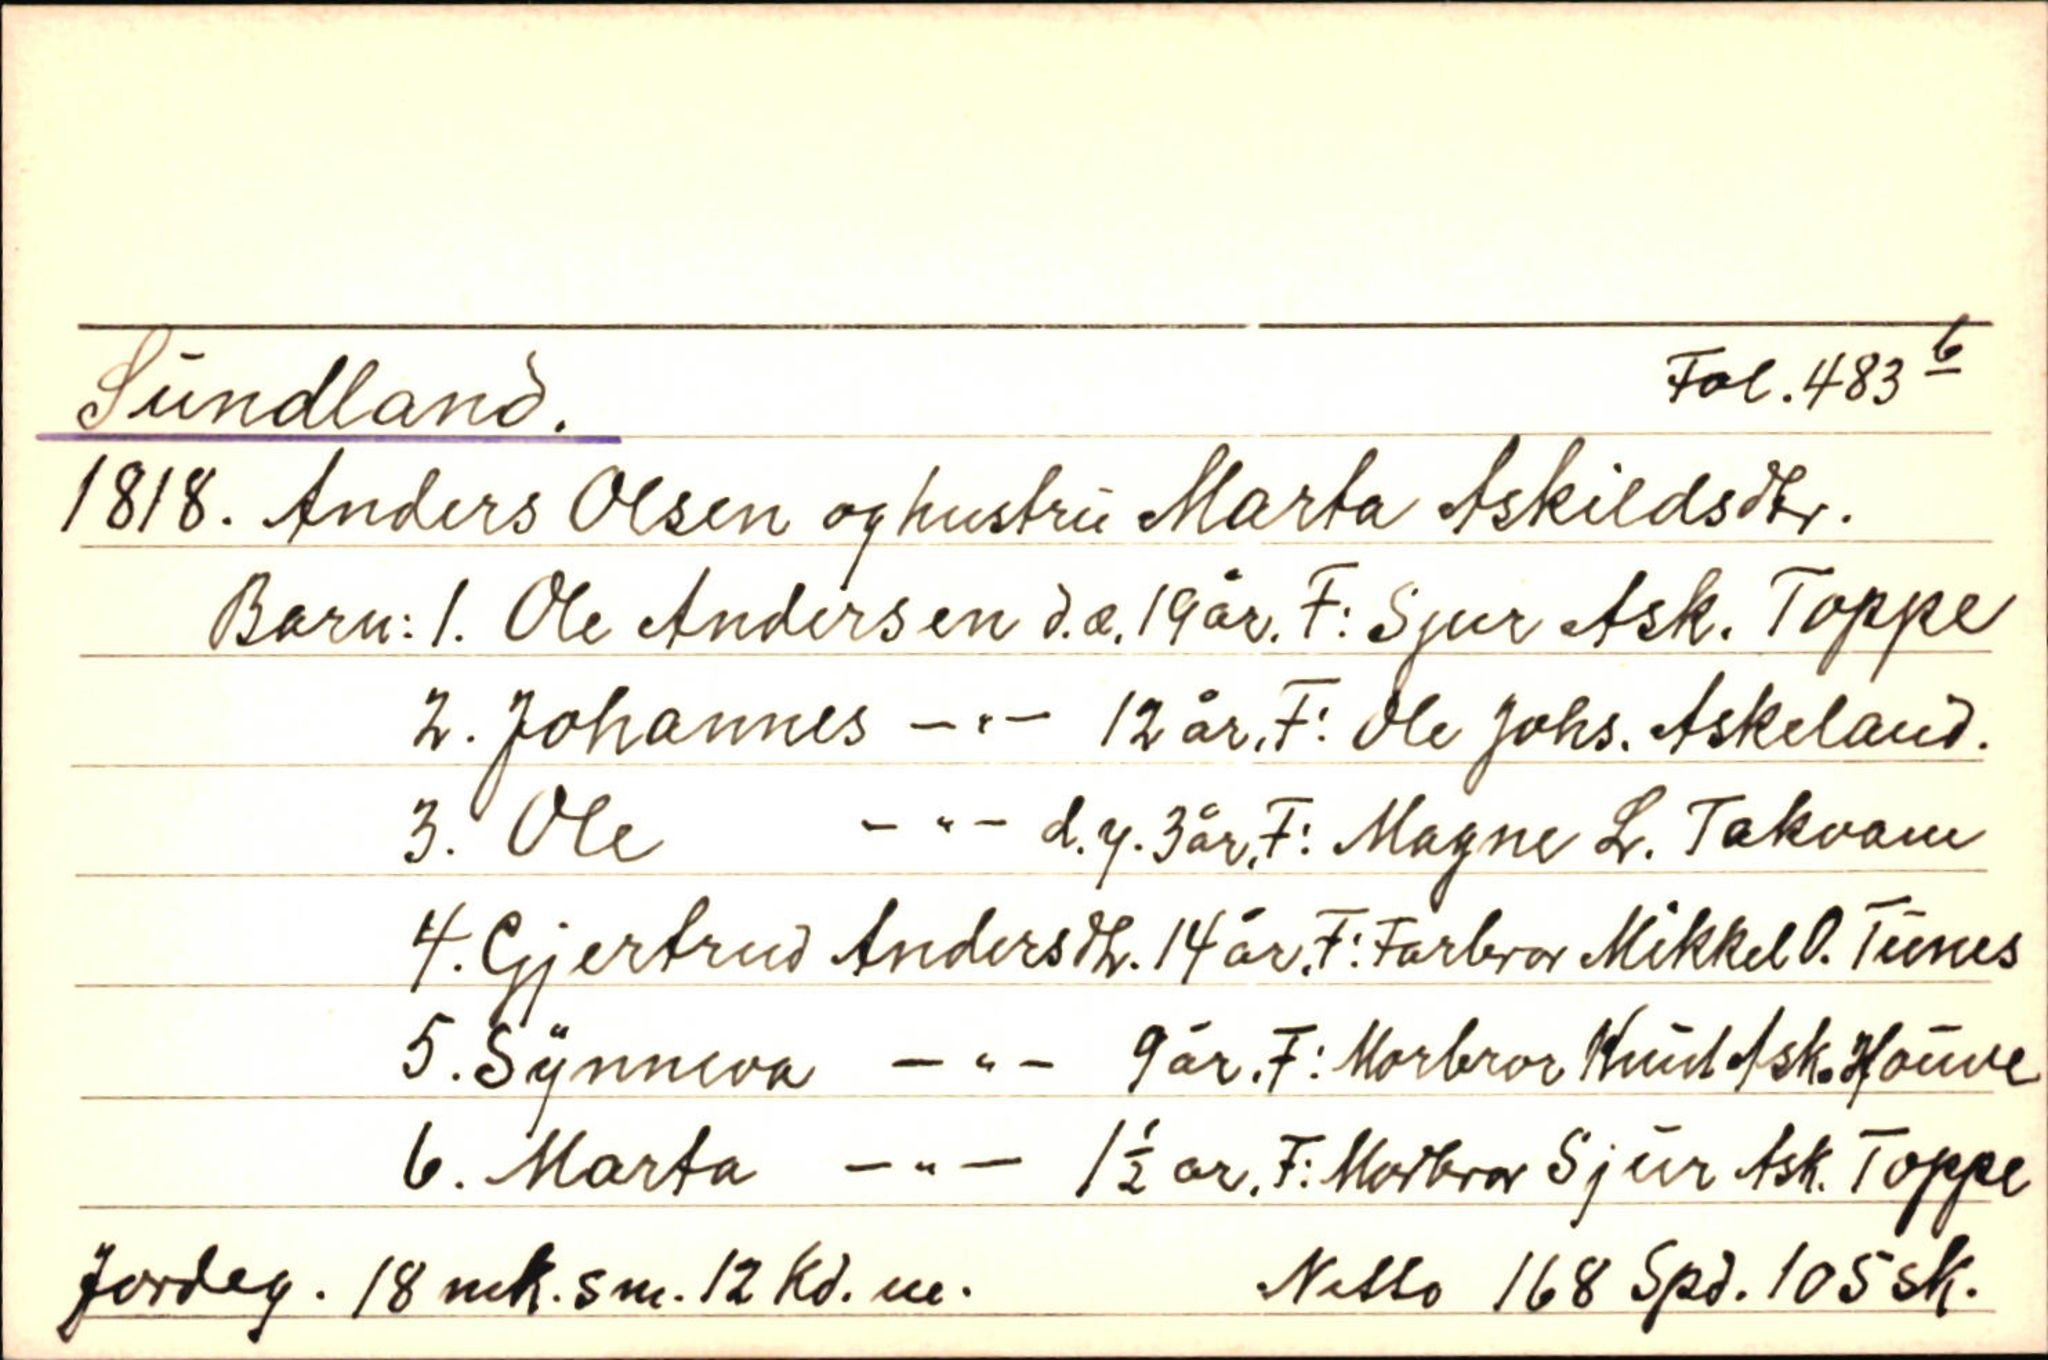 Sundland. Fol. 483 b
1818. Anders Olsen og hustru Marta Askildsdtr.
Barn: 1. Ole Andersen d.e. 19 år. F: Sjur Ask. Toppe
2. Johannes —"— 12 år. F: Ole Johs. Askeland.
3. Ole —"— d.y. 3 år. F: Magne L. Takvam
4. Gjertrud Andersdt. 14 år. F: Farbror Mikkel O. Tunes
5. Synneva —"— 9 år. F: Morbror Knud Ask. Houve
6. Marta —"— 1½ år. F: Morbror Sjur Ask. Toppe
Jordeg. 18 mk. sm. 12 Kd. m. Netto 168 Spd. 105 sk.